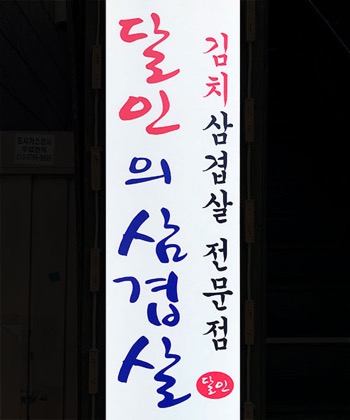 달인의 삼겹살
김치삼겹살 전문점
달인